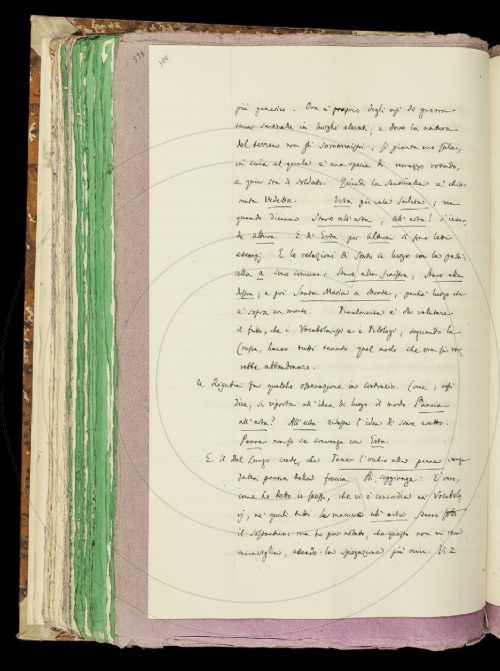 più generico. Ora è proprio degli usi di guerra
tener sentinelle in luoghi elevati, e dove la natura
del terreno non gli somministri, si pianta un palco,
in cima al quale è una specie di terrazzo rotondo,
e quivi sta il soldato. Quindi la sentinella è chia-
mata Vedetta. Erta poi vale Salita, ma
quando diciamo Stare all'erta, All'erta! s'inten-
de altura. E d'Erta per altura si sono letti
esempj. E le relazioni di stato in luogo con la parti-
cella a sono comuni, Stare alla sinistra, Stare alla
destra; e poi Santa Maria a Monte, perché luogo che
è sopra un monte. Finalmente è da valutare
il fatto, che i Vocabolaristi e i Filologi, seguendo la
Crusca, hanno tutti tenuto quel modo che ora si vor-
rebbe abbandonare.
Il Rigutini fa qualche osservazione in contrario. Come, egli
dice, si riporta all'idea di luogo il modo Pancia
all'erta? All'erta sveglia l'idea di stare eretto.
Penna non so se convenga con Erta.
E il Del Lungo crede, che Tener l'occhio alla penna venga
dalla penna della freccia. Poi soggiunge: È vero,
come ha detto lo stesso, che vi è concordia ne' Vocabola-
rj, ne' quali tutti la maniera all'erta stava sotto
il sostantivo: ma ho pur notato, che questo non mi reca
maraviglia, essendo la spiegazione più ovvia. Vi è